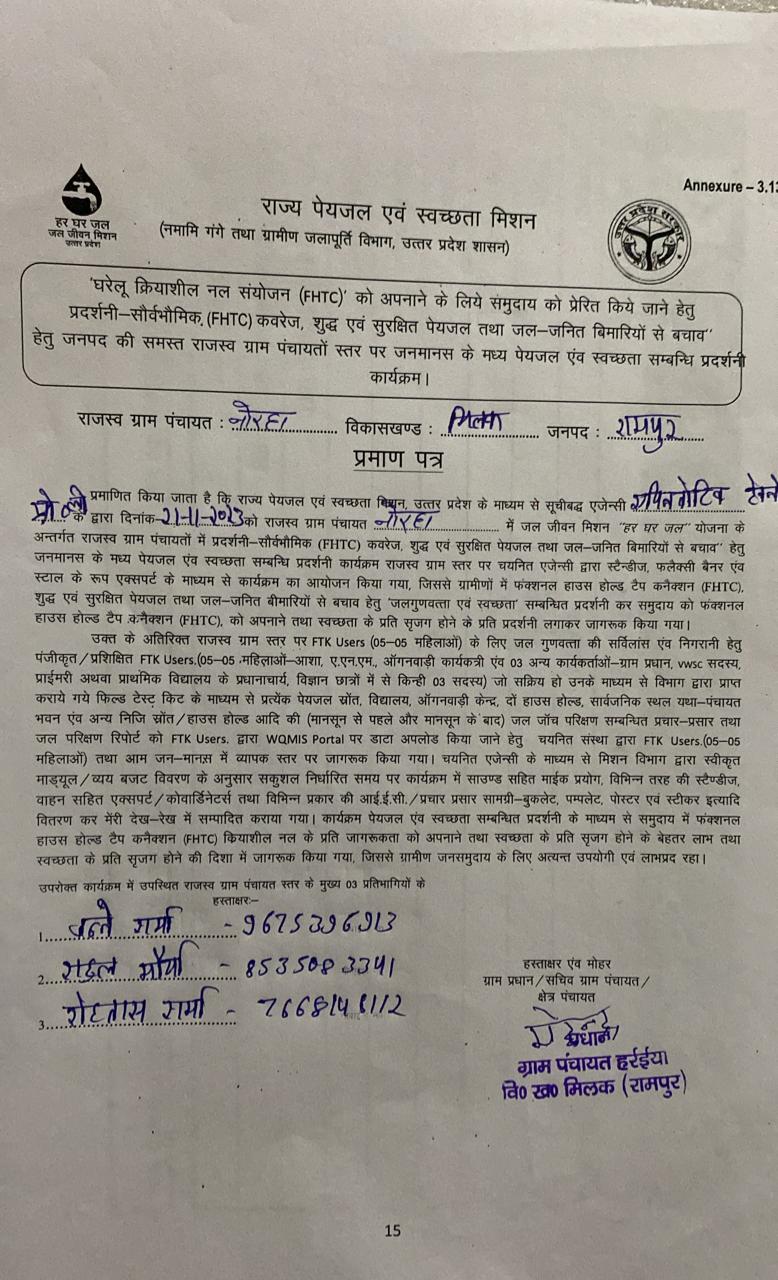 Annexure – 3.13
हर घर जल
जल जीवन मिशन
उत्तर प्रदेश
राज्य पेयजल एवं स्वच्छता मिशन
(नमामि गंगे तथा ग्रामीण जलापूर्ति विभाग, उत्तर प्रदेश शासन)
उत्तर प्रदेश सरकार
'घरेलू क्रियाशील नल संयोजन (FHTC)' को अपनाने के लिये समुदाय को प्रेरित किये जाने हेतु
प्रदर्शनी–सौर्वभौमिक, (FHTC) कवरेज, शुद्ध एवं सुरक्षित पेयजल तथा जल–जनित बिमारियों से बचाव"
हेतु जनपद की समस्त राजस्व ग्राम पंचायतों स्तर पर जनमानस के मध्य पेयजल एंव स्वच्छता सम्बन्धि प्रदर्शनी
कार्यक्रम।
राजस्व ग्राम पंचायत : नोरहा विकासखण्ड : मिलक जनपद : रामपुर
प्रमाण पत्र
प्रमाणित किया जाता है कि राज्य पेयजल एवं स्वच्छता मिशन, उत्तर प्रदेश के माध्यम से सूचीबद्ध एजेन्सी
के द्वारा दिनांक-21-11-2023 को राजस्व ग्राम पंचायत नोरहा में जल जीवन मिशन "हर घर जल" योजना के
अन्तर्गत राजस्व ग्राम पंचायतों में प्रदर्शनी–सौर्वभौमिक (FHTC) कवरेज, शुद्ध एवं सुरक्षित पेयजल तथा जल–जनित बिमारियों से बचाव" हेतु
जनमानस के मध्य पेयजल एंव स्वच्छता सम्बन्धि प्रदर्शनी कार्यक्रम राजस्व ग्राम स्तर पर चयनित एजेन्सी द्वारा स्टेन्डीज, फलैक्सी बैनर एंव
स्टाल के रूप एक्सपर्ट के माध्यम से कार्यक्रम का आयोजन किया गया, जिससे ग्रामीणों में फंक्शनल हाउस होल्ड टैप कनैक्शन (FHTC),
शुद्ध एवं सुरक्षित पेयजल तथा जल–जनित बीमारियों से बचाव हेतु 'जलगुणवत्ता एवं स्वच्छता' सम्बन्धित प्रदर्शनी कर समुदाय को फंक्शनल
हाउस होल्ड टैप कनैक्शन (FHTC), को अपनाने तथा स्वच्छता के प्रति सृजग होने के प्रति प्रदर्शनी लगाकर जागरूक किया गया।
उक्त के अतिरिक्त राजस्व ग्राम स्तर पर FTK Users (05–05 महिलाओं) के लिए जल गुणवत्ता की सर्विलांस एंव निगरानी हेतु
पंजीकृत/प्रशिक्षित FTK Users.(05–05 महिलाओं–आशा, ए.एन.एम., ऑगनवाड़ी कार्यकत्री एंव 03 अन्य कार्यकर्ताओं–ग्राम प्रधान, vwsc सदस्य,
प्राईमरी अथवा प्राथमिक विद्यालय के प्रधानाचार्य, विज्ञान छात्रों में से किन्ही 03 सदस्य) जो सक्रिय हो उनके माध्यम से विभाग द्वारा प्राप्त
कराये गये फिल्ड टेस्ट किट के माध्यम से प्रत्येक पेयजल स्रोंत, विद्यालय, ऑगनवाड़ी केन्द्र, दों हाउस होल्ड, सार्वजनिक स्थल यथा–पंचायत
भवन एंव अन्य निजि स्रोंत/हाउस होल्ड आदि की (मानसून से पहले और मानसून के बाद) जल जाँच परिक्षण सम्बन्धित प्रचार–प्रसार तथा
जल परिक्षण रिपोर्ट को FTK Users. द्वारा WQMIS Portal पर डाटा अपलोड किया जाने हेतु चयनित संस्था द्वारा FTK Users.(05–05
महिलाओं) तथा आम जन–मानस में व्यापक स्तर पर जागरूक किया गया। चयनित एजेन्सी के माध्यम से मिशन विभाग द्वारा स्वीकृत
माड्यूल/व्यय बजट विवरण के अनुसार सकुशल निर्धारित समय पर कार्यक्रम में साउण्ड सहित माईक प्रयोग, विभिन्न तरह की स्टैण्डीज,
वाहन सहित एक्सपर्ट/कोवार्डिनेटर्स तथा विभिन्न प्रकार की आई.ई.सी./प्रचार प्रसार सामग्री–बुकलेट, पम्पलेट, पोस्टर एवं स्टीकर इत्यादि
वितरण कर मेंरी देख–रेख में सम्पादित कराया गया। कार्यक्रम पेयजल एंव स्वच्छता सम्बन्धित प्रदर्शनी के माध्यम से समुदाय में फंक्शनल
हाउस होल्ड टैप कनैक्शन (FHTC) कियाशील नल के प्रति जागरूकता को अपनाने तथा स्वच्छता के प्रति सृजग होने के बेहतर लाभ तथा
स्वच्छता के प्रति सृजग होने की दिशा में जागरूक किया गया, जिससे ग्रामीण जनसमुदाय के लिए अत्यन्त उपयोगी एवं लाभप्रद रहा।
उपरोक्त कार्यक्रम में उपस्थित राजस्व ग्राम पंचायत स्तर के मुख्य 03 प्रतिभागियों के
हस्ताक्षरः–
1. शर्मा - 9675396913
2. राहुल मौर्या - 8535083341
3. रोहतास शर्मा - 7668148112
हस्ताक्षर एंव मोहर
ग्राम प्रधान/सचिव ग्राम पंचायत/
क्षेत्र पंचायत
प्रधान
ग्राम पंचायत हर्रईया
वि0 ख0 मिलक (रामपुर)
15